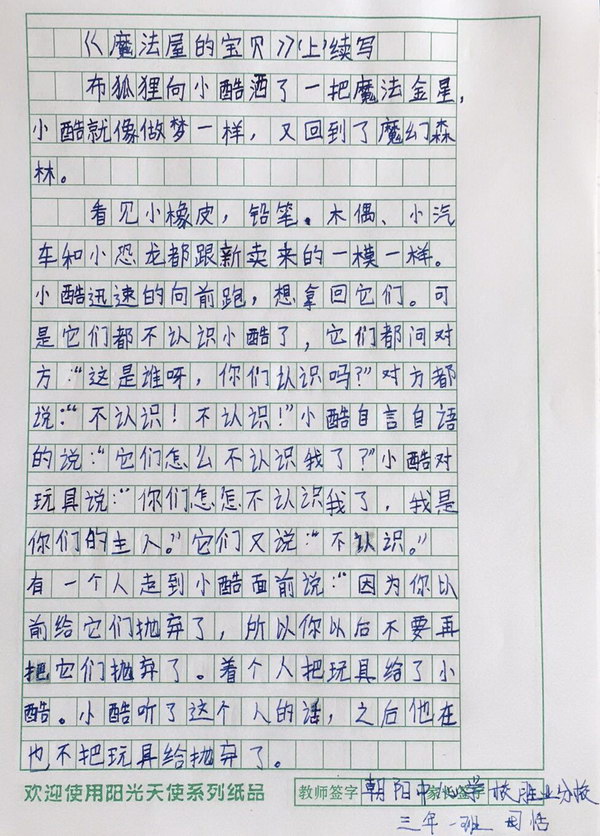 《魔法屋的宝贝》(上)续写
布狐狸向小酷洒了一把魔法金星,
小酷就像做梦一样，又回到了魔幻森
林。
看见小橡皮，铅笔．木偶、小汽
车和小恐龙都跟新卖来的一模一样。
小酷迅速的向前跑，想拿回它们。可
是它们都不认识小酷了，它们都问对
方：“这是谁呀，你们认识吗?”对方都
说：“不认识！不认识！”小酷自言自语
的说：“它们怎么不认识我了?”小酷对
玩具说：“你们怎怎不认识我了，我是
你们的主人。”它们又说：“不认识。”
有一个人走到小酷面前说：“因为你以
前给它们抛弃了，所以你以后不要再
把它们抛弃了。着个人把玩具给了小
酷。小酷听了这个人的话，之后他在
也不把玩具给抛弃了。
欢迎使用阳光天使系列纸品 教师签字 家长签字
朝阳中心学校 分校
三年一班 周